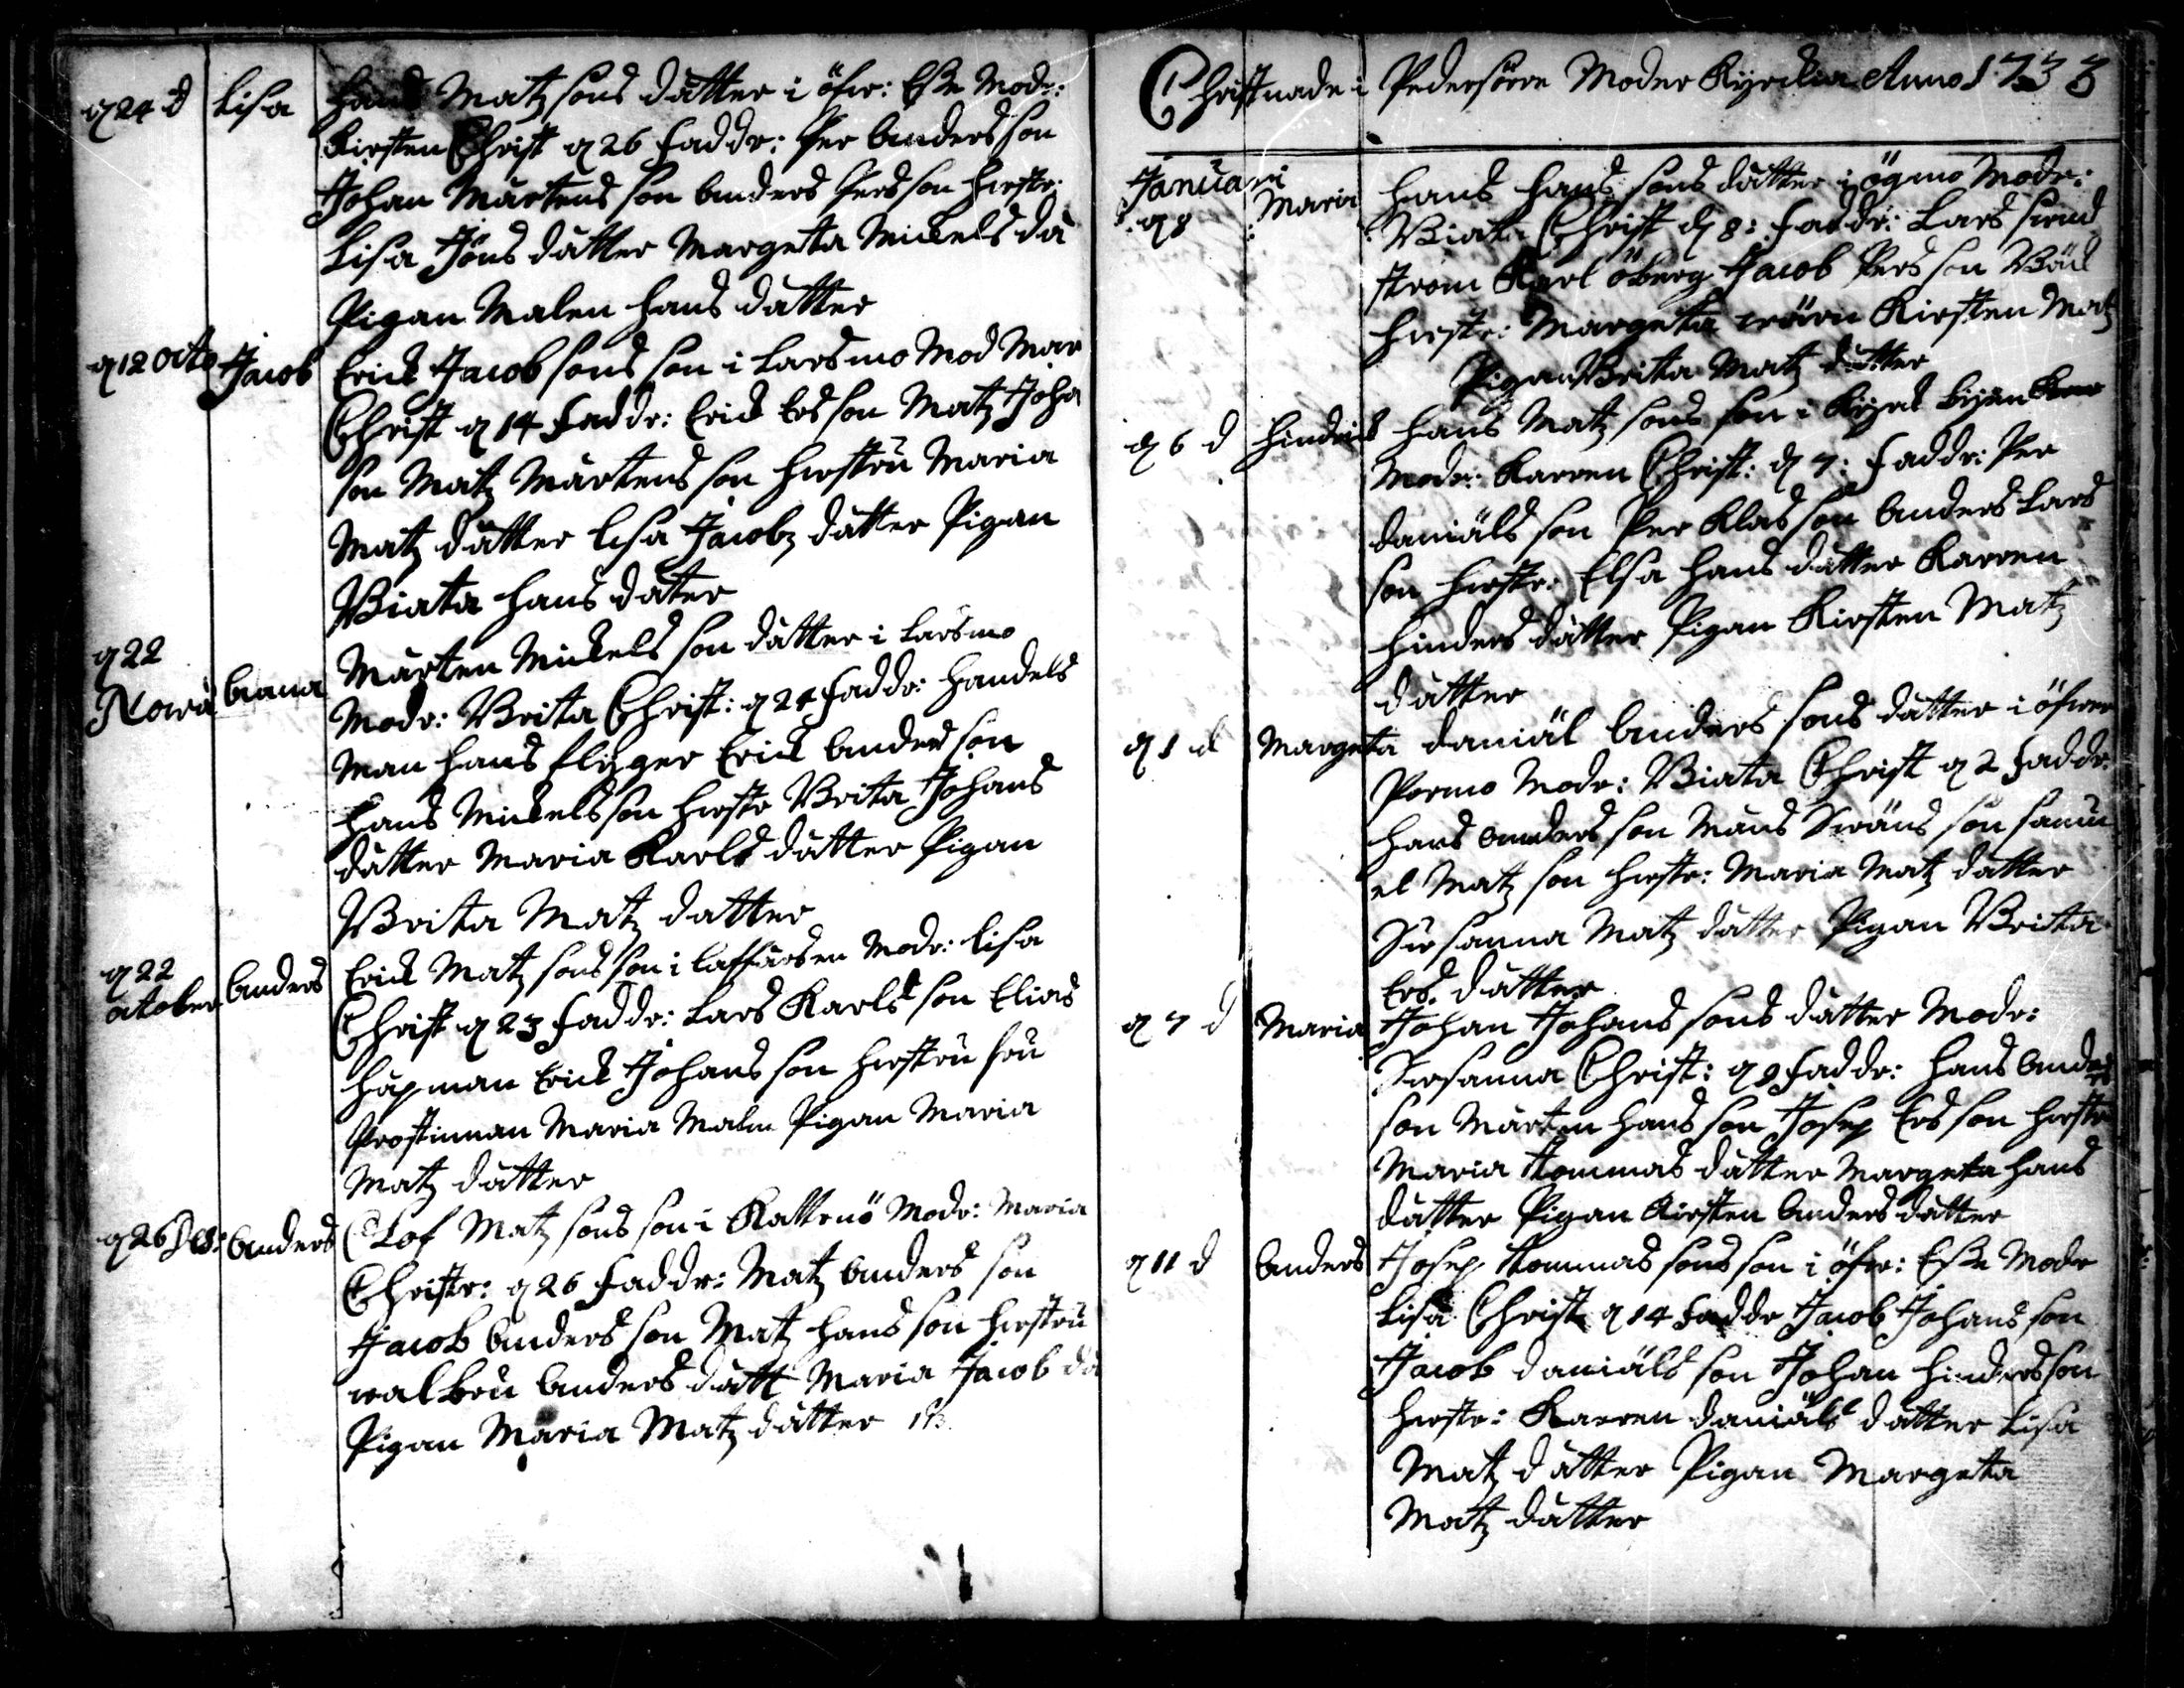 d 24 d Lisa Hans Matz sons dåtter i öfwr: Esse Modr:
Kirsten Christ d 26 Faddr: Per Anders son
Johan Mårtens son Anders Pers son hustr:
Lisa Jöns dåtter Margeta Mickels då
Pigan Malen Hans dåtter
d 12 octo Jacob Erick Jacob sons son i Larsmo Mod Mar
Christ d 14 Faddr: Erick Ers son Matz Joha
son Matz Mårtens son hustru Maria
Matz dåtter Lisa Jacobz dåtter Pigan
Biata Hans dåter
d 22
Nowe Anna Mårten Mickels son dåtter i Larsmo
Modr: Brita Christ: d 24 Faddr: Handels
man Hans Flyger Erick Anders son
Hans Mickels son hustr Brita Johans
dåtter Maria Karls dåtter Pigan
Brita Matz datter
d 22
october Anders Erick Matz sons son i Modr: Lisa
Christ d 23 Faddr: Lars Karls son Elias
Håpman Erick Johans son hustru fru
Prostinnan Maria Malm Pigan Maria
Matz dåtter
d 26 Anders Olof Matz sons son i Kattnö Modr: Maria
Christr: d 26 Faddr: Matz Anders son
Jacob Anders son Matz Hans son hustru
walbru Anders dått Maria Jacob då
Pigan Maria Matz dåtter
Christnade i Pedersörre Moder Kyrckia Anno 1733
Januari
d 8 Maria Hans Hans sons dåtter i ögmo Modr:
Biata Christ d 8: Faddr: Lars
ström Karl öberg Jacob Pers son
hustr: Margeta Kirsten Matz
Pigan Brita Matz dåtter
d 6 d Hindrick Hans Matz sons son i
Modr: Karren Christ: d 7: Faddr: Per
Daniäls son Per Klas son Anders Lars
son hustr: Elsa Hans dåtter Karren
Hinders dåtter Pigan Kirsten Matz
dåtter
d 1 d Margeta Daniäl Anders sons dåtter i öfwer
Pormo Modr: Biata Christ d 2 Faddr.
Hans Anders son Måns Swäns son Samu
el Matz son hustr: Maria Matz dåtter
Susanna Matz dåtter Pigan Brita
Ers dåtter
d 7 d Maria Johan Johans sons dåtter Modr:
Susanna Christ: d 8 Faddr: Hans Anders
son Mårten Hans son Josep Ers son hustr
Maria Tommas dåtter Margeta Hans
dåtter Pigan Kirsten Anders dåtter
d 11 d Anders Josep Tommas sons son i öfwr: Esse Modr
Lisa Christ d 14 Faddr Jacob Johans son
Jacob Daniäls son Johan Hinders son
hustr: Karren Daniäls dåtter Lisa
Matz dåtter Pigan Margeta
Matz dåtter